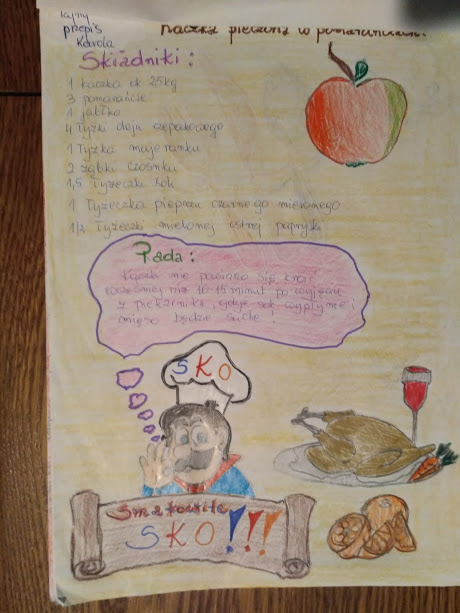 Tajny
przepis
Karola
Kaczka pieczona w pomarańczach.
Składniki:
1 kaczka ok 2,5kg
3 pomarańcze
1 jabłko
4 Łyżki oleju rzepakowego
1 Łyżka majeranku
2 ząbki czosnku
1,5 Łyżeczki soli
1 Łyżeczka pieprzu czarnego mielonego
1/2 Łyżeczki mielonej ostrej papryki
Rada:
Kaczki nie powinno się kroić
wcześniej niż 10-15 minut po wyjęciu
z piekarnika, gdyż sok wypłynie i
mięso będzie suche!
SKO
Smakowite
SKO!!!